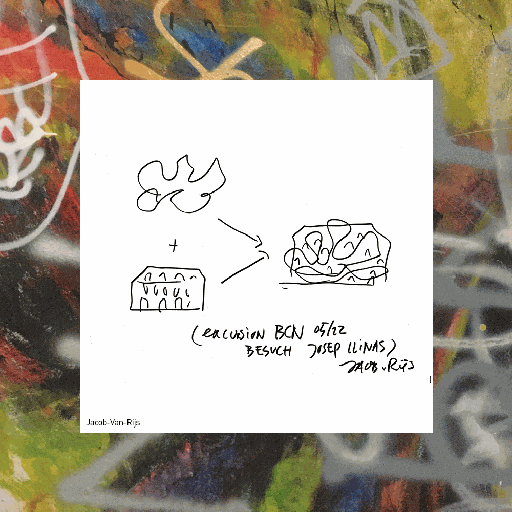 +
(excusion BCN 05/22
BESUCH JOSEP LLINAS)
JACOB v. Rijs
Jacob-Van-Rijs